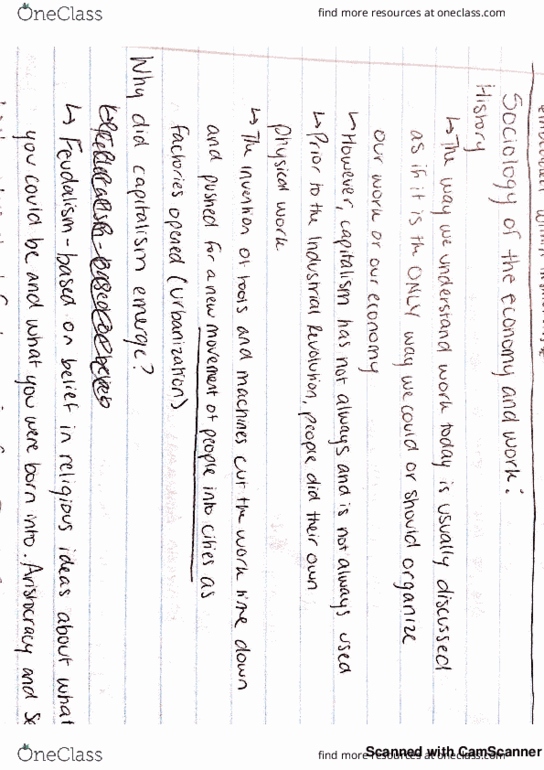 OneClass
find more resources at oneclass.com
Sociology of the economy and work:
History
↳ The way we understand work today is usually discussed
as if it is the ONLY way we could or should organize
our work or our economy
↳ However, capitalism has not always and is not always used
↳ Prior to the Industrial Revolution, people did their own
physical work
↳ The invention of tools and machines cut the work time down
and pushed for a new movement of people into cities as
factories opened (urbanization)
Why did capitalism emerge?
↳ Feudalism - based on belief in religious ideas about what
you could be and what you were born into. Aristocracy and
OneClass
find more resources at oneclass.com
Scanned with CamScanner